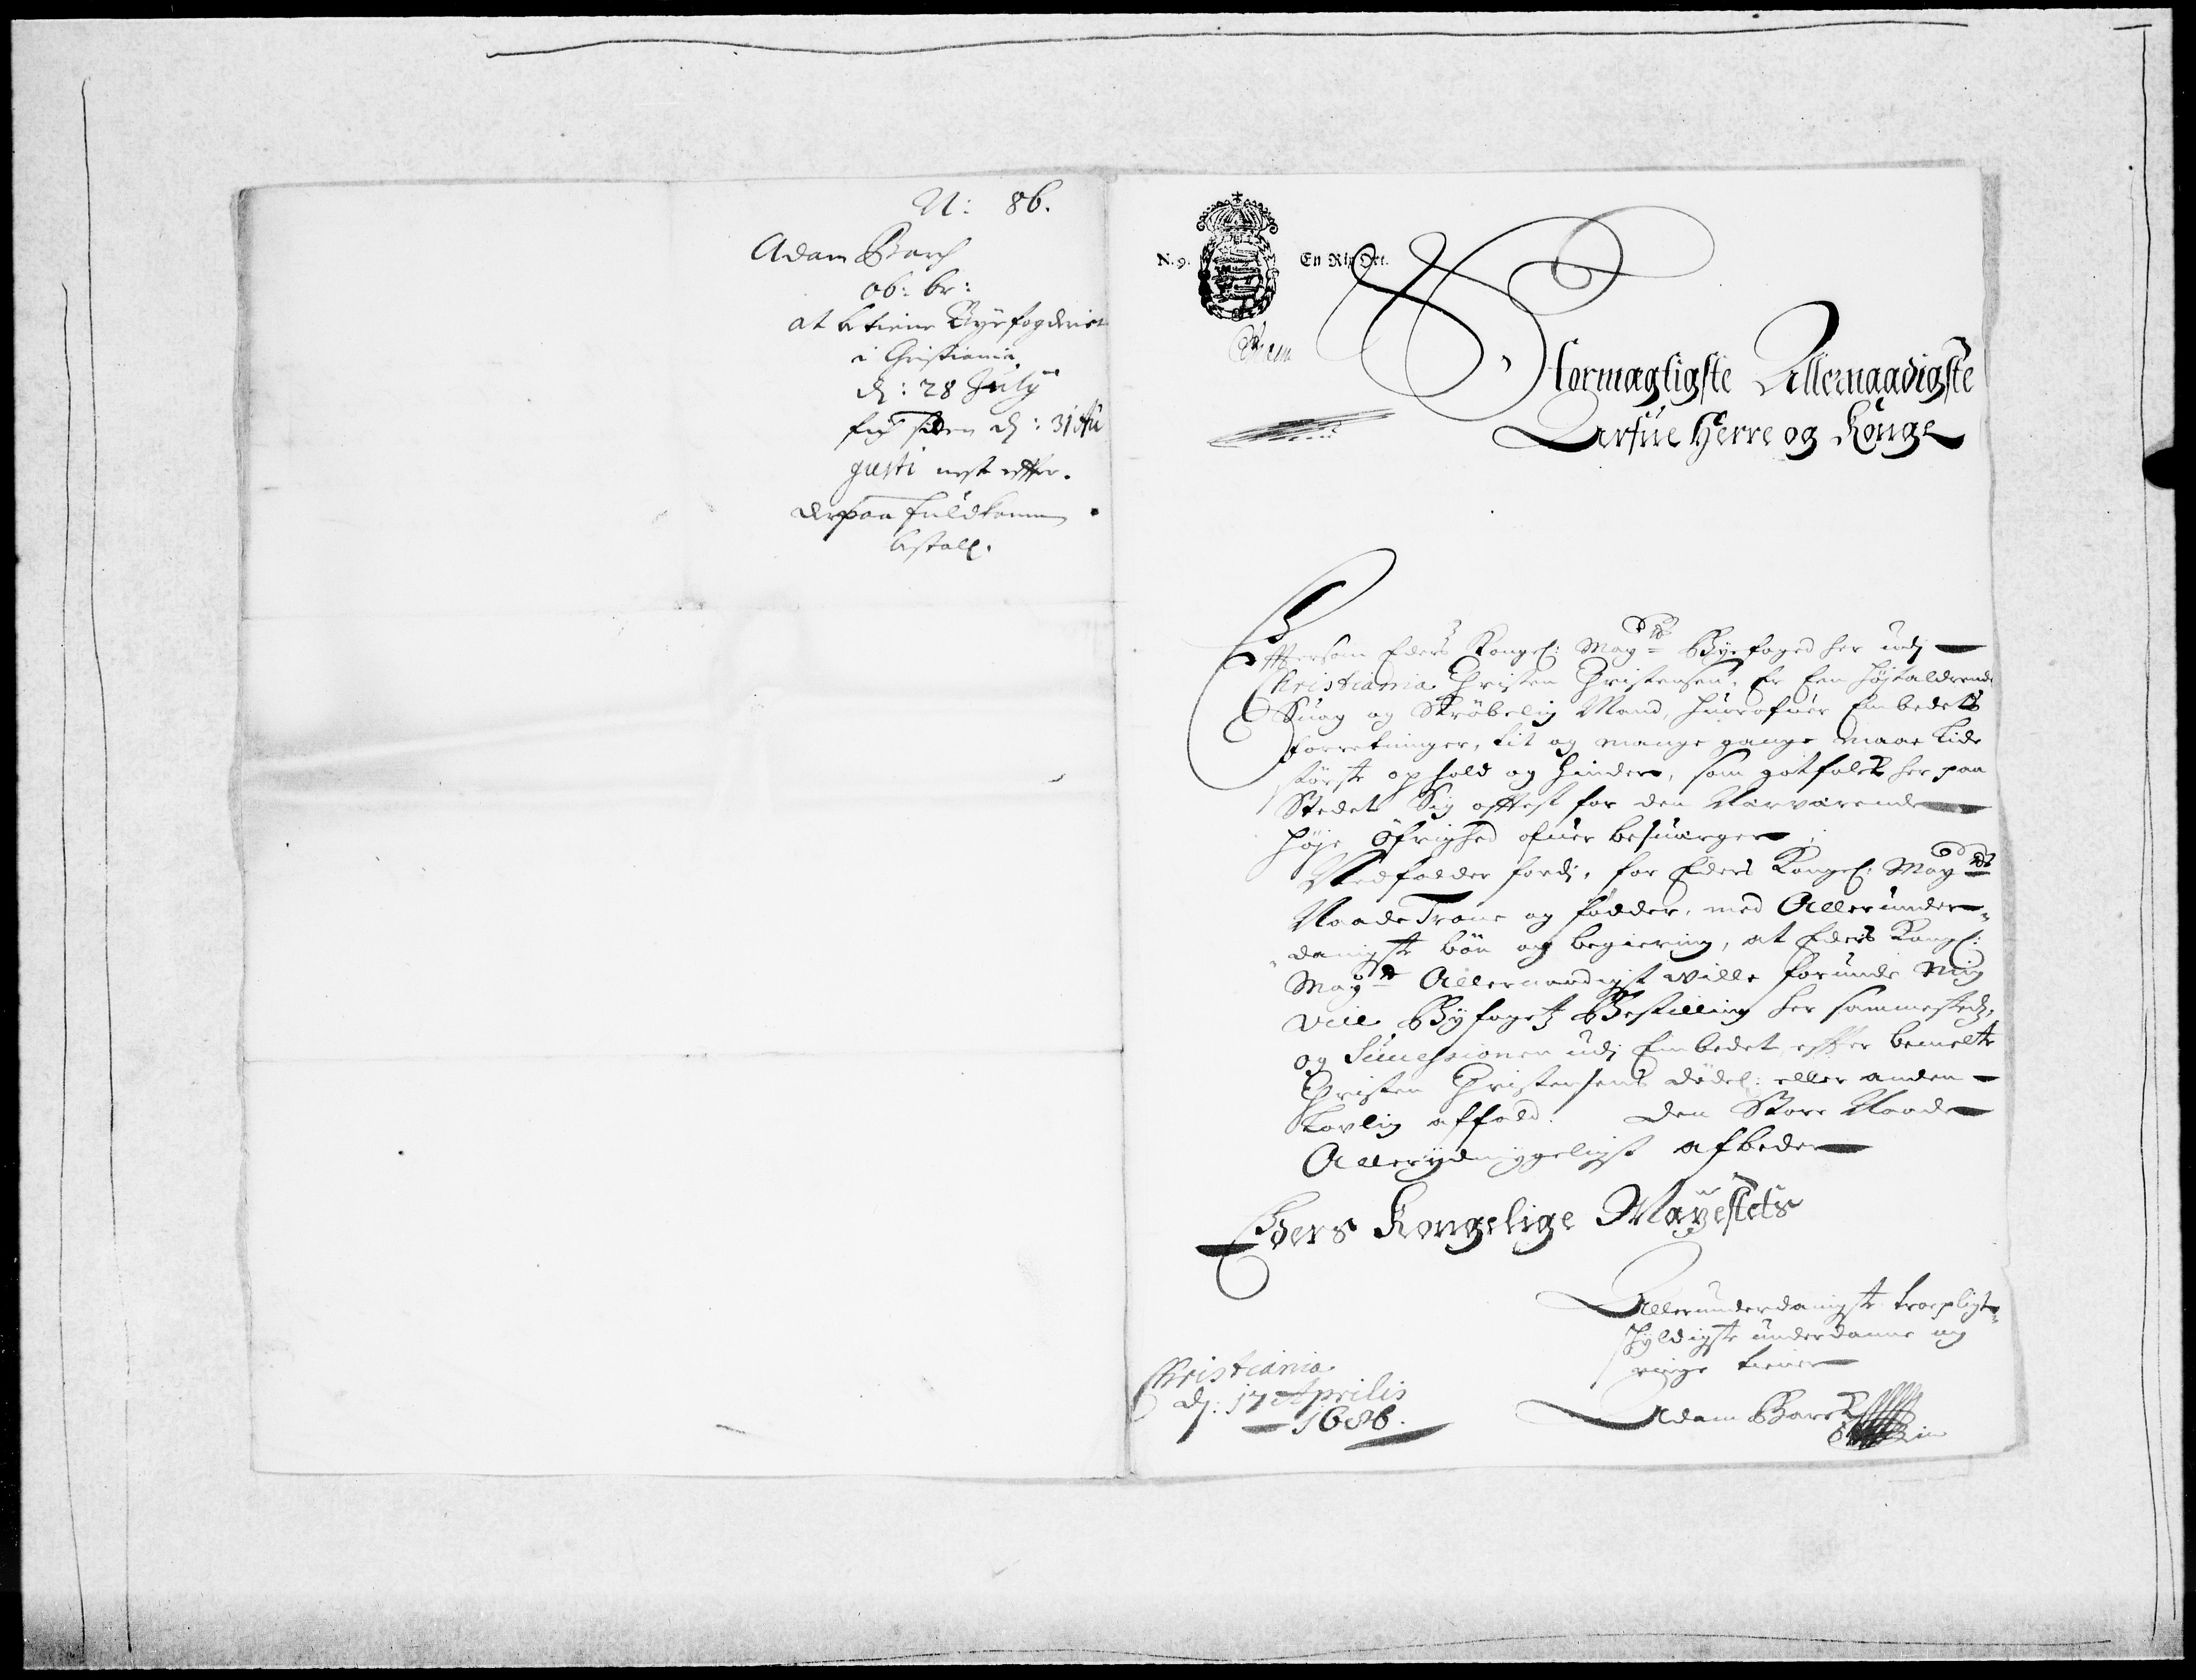 N: 86.
Adam Barch
ob: br:
at betiene Byefogderiet
i Christiania
dj: 28 July
fick siden dj: 31 Au
gusti nest effter.
derpaa fuldkommen
bestall.
N. 9. En Rix Ort.
Stormægtigste Allernaadigste
Arfue Herre og Konge
Efftersom Eders Kongel: Mayts Byefoged her udj
Christiania Christen Christensen, Er Een højtaldrende
Suag og Skrøbelig Mand, huorofuer Embedets
forretninger, tit og mange gange maae lide
største ophold og hinder, som gotfolck her paa
Stedet Sig offtest for den Nærværende
høje Øfrighed ofuer besuærger
Nedfalder fordj, for Eders Kongel: Mayts
Naade Trone og fødder, med Allerunder-
danigste bøn og begiering, at Eders Kongel:
Mayt Allernaadigst wille forunde Mig
Byfogetz Bestilling her sammestedz,
og Successionen udj Embedet effter bemelte
Christen Christensens dødel: eller anden
Lovlig affald. Den Store Naade
Allerydmygeligst afbeder
Eders Kongelige Mayestets
Allerunderdanigste troepligt-
skyldigste underdanne og
ringe tiener
Adam Barch
Christiania
dj: 17 Aprilis
1686.